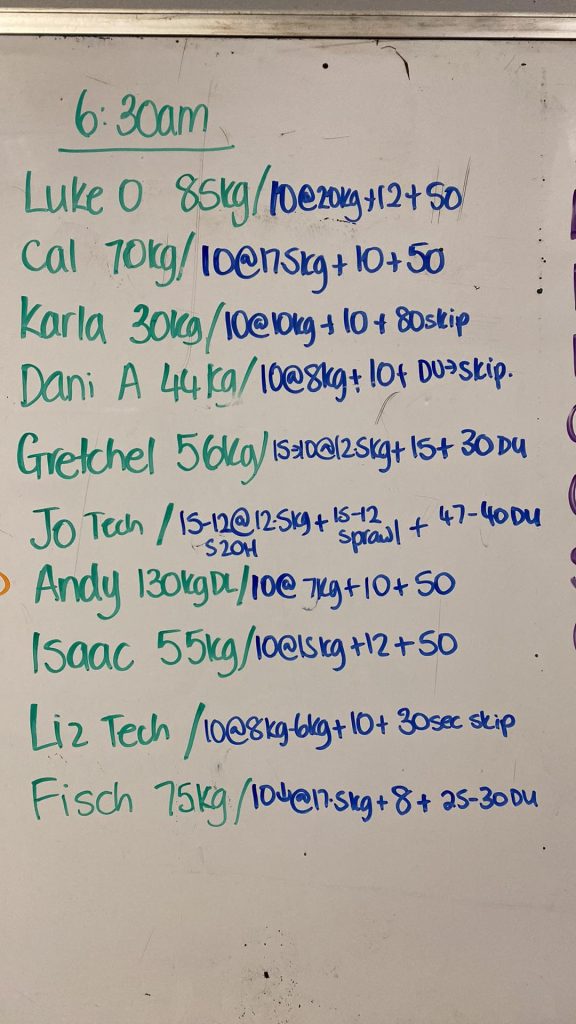 6:30am
Luke O 85kg/10@20kg+12+50
Cal 70kg/10@17.5kg+10+50
Karla 30kg/10@10kg+10+80skip
Dani A 44kg/10@8kg+10+ DU→skip.
Gretchel 56kg/15→10@12.5kg+15+30DU
Jo Tech /15-12@12.5kg+15-12 + 47-40DU
S2OH sprawl
Andy 130kgDL/10@7kg+10+50
Isaac 55kg/10@15kg+12+50
Liz Tech /10@8kg-6kg+10+30sec skip
Fisch 75kg/10↓@17.5kg+8+25-30DU